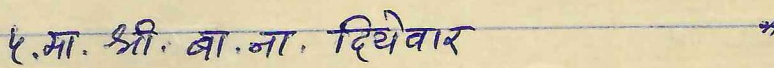 प.मा. श्री. बा.ना. दियेवार